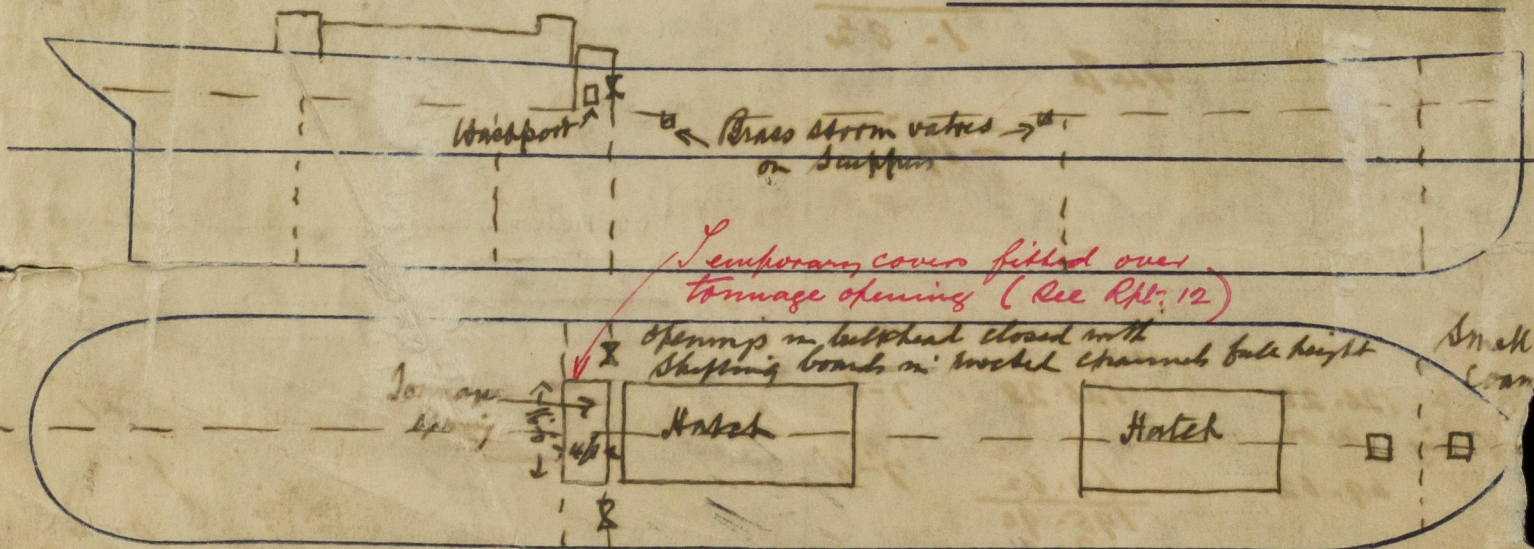 Washport
Brass storm valves
on scuppers
Temporary covers fitted over
tonnage opening (See Rpt. 12)
openings in bulkhead closed with
shifting boards in riveted channels full height
Small
Tonnage
opening
Hatch
Hatch